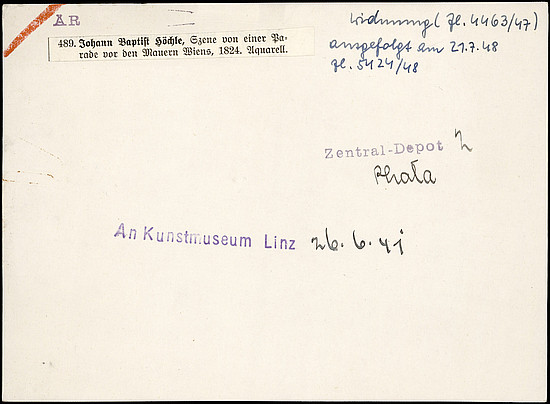 AR
Widmung (Zl. 4463/47)
ausgefolgt am 21.7.48
Zl. 5424/48
489. Johann Baptist Höchle, Szene von einer Pa-
rade vor den Mauern Wiens, 1824. Aquarell.
Zentral-Depot
An Kunstmuseum Linz 26.6.41